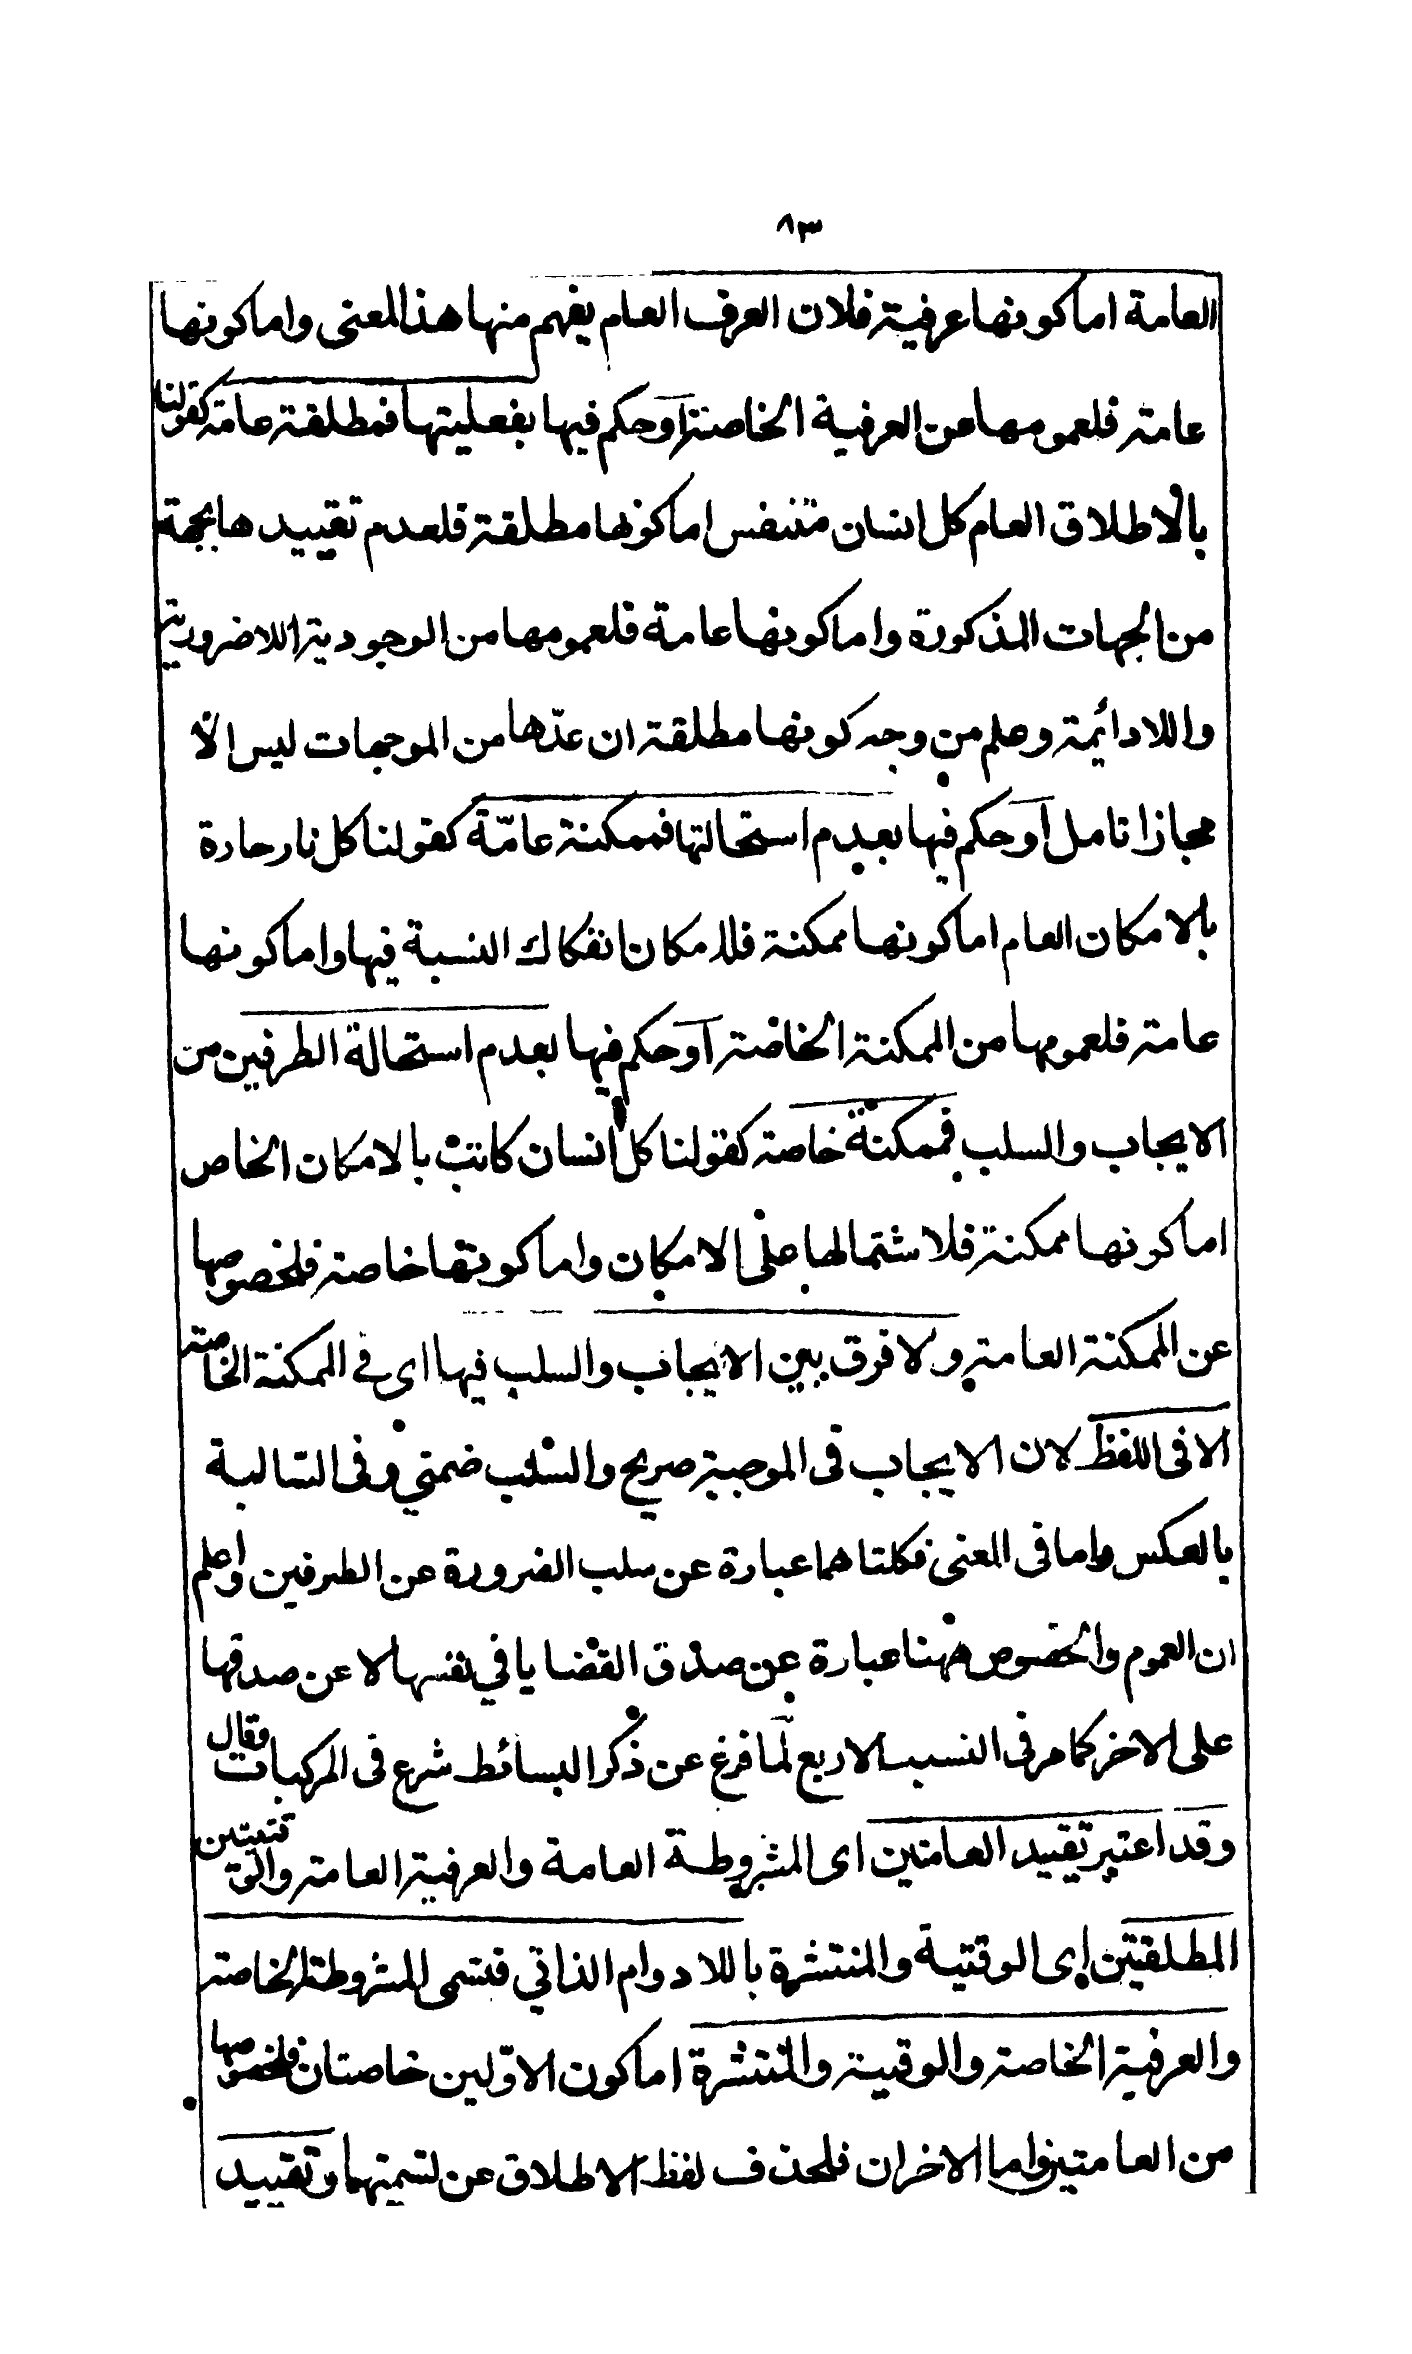 ٨٣
العامة اما كونها عرفية فلان العرف العام يفهم منها هذا المعنى واما كونها
عامة فلعمومها عن العرفية الخاصة او حكم فيها بفعليتها فمطلقة عامة كقولنا
بالاطلاق العام كل انسان متنفس اما كونها مطلقة فلعدم تقييدها بجهة
من الجهات المذكورة واما كونها عامة فلعمومها من الوجودية اللاضرورية
واللادائمة وعلم من وجه كونها مطلقة ان عدّها من الموجهات ليس الّا
مجازا تامل او حكم فيها بعدم استحالتها فممكنة عامّة كقولنا كل نار حارة
بالامكان العام اما كونها ممكنة فللامكان انفكاك النسبة فيها واما كونها
عامة فلعمومها من الممكنة الخاصة او حكم فيها بعدم استحالة الطرفين من
الايجاب والسلب فممكنة خاصة كقولنا كل انسان كاتب بالامكان الخاص
اما كونها ممكنة فلاشتمالها على الامكان واما كونها خاصة فلخصوصها
عن الممكنة العامة ولا فرق بين الايجاب والسلب فيها اى فى الممكنة الخاصة
الا فى اللفظ لان الايجاب فى الموجبة صريح والسلب ضمني وفى السالبة
بالعكس واما فى المعنى فكلتاهما عبارة عن سلب الضرورة عن الطرفين واعلم
ان العموم والخصوص ههنا عبارة عن صدق القضايا في نفسها لا عن صدقها
على الاخر كما مر فى النسب الاربع لمّا فرغ عن ذكر البسائط شرع فى المركبات فقال
وقد اعتبر تقييد العامتين اى المشروطة العامة والعرفية العامة والوقتيتين
المطلقتين اى الوقتية والمنتشرة باللادوام الذاتي فتسمى المشروطة الخاصة
والعرفية الخاصة والوقتية والمنتشرة اما كون الاوّلين خاصتان فلخصوصها
من العامتين واما الاخران فلحذف لفظ الاطلاق عن تسميتهما وتقييد